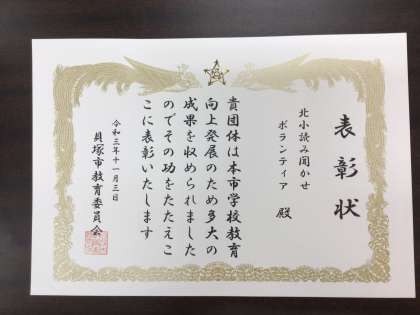 表彰状
北小読み聞かせ
ボランティア 殿
貴団体は本市学校教育
向上発展のため多大の
成果を収められました
のでその功をたたえこ
こに表彰いたします
令和三年十一月三日
貝塚市教育委員会